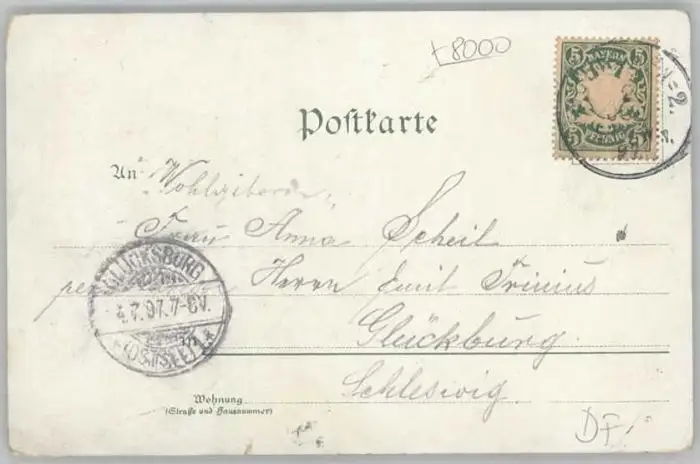 8000
5 BAYERN 5
5 PFENNIG 5
Postkarte
An Wohlgeboren
Frau Anna Scheil
per Herrn Emil Trinius
Glückburg
in
Schleswig
GLÜCKSBURG
7.97.7-8V.
(OSTSEE)
Wohnung
(Straße und Hausnummer)
DF